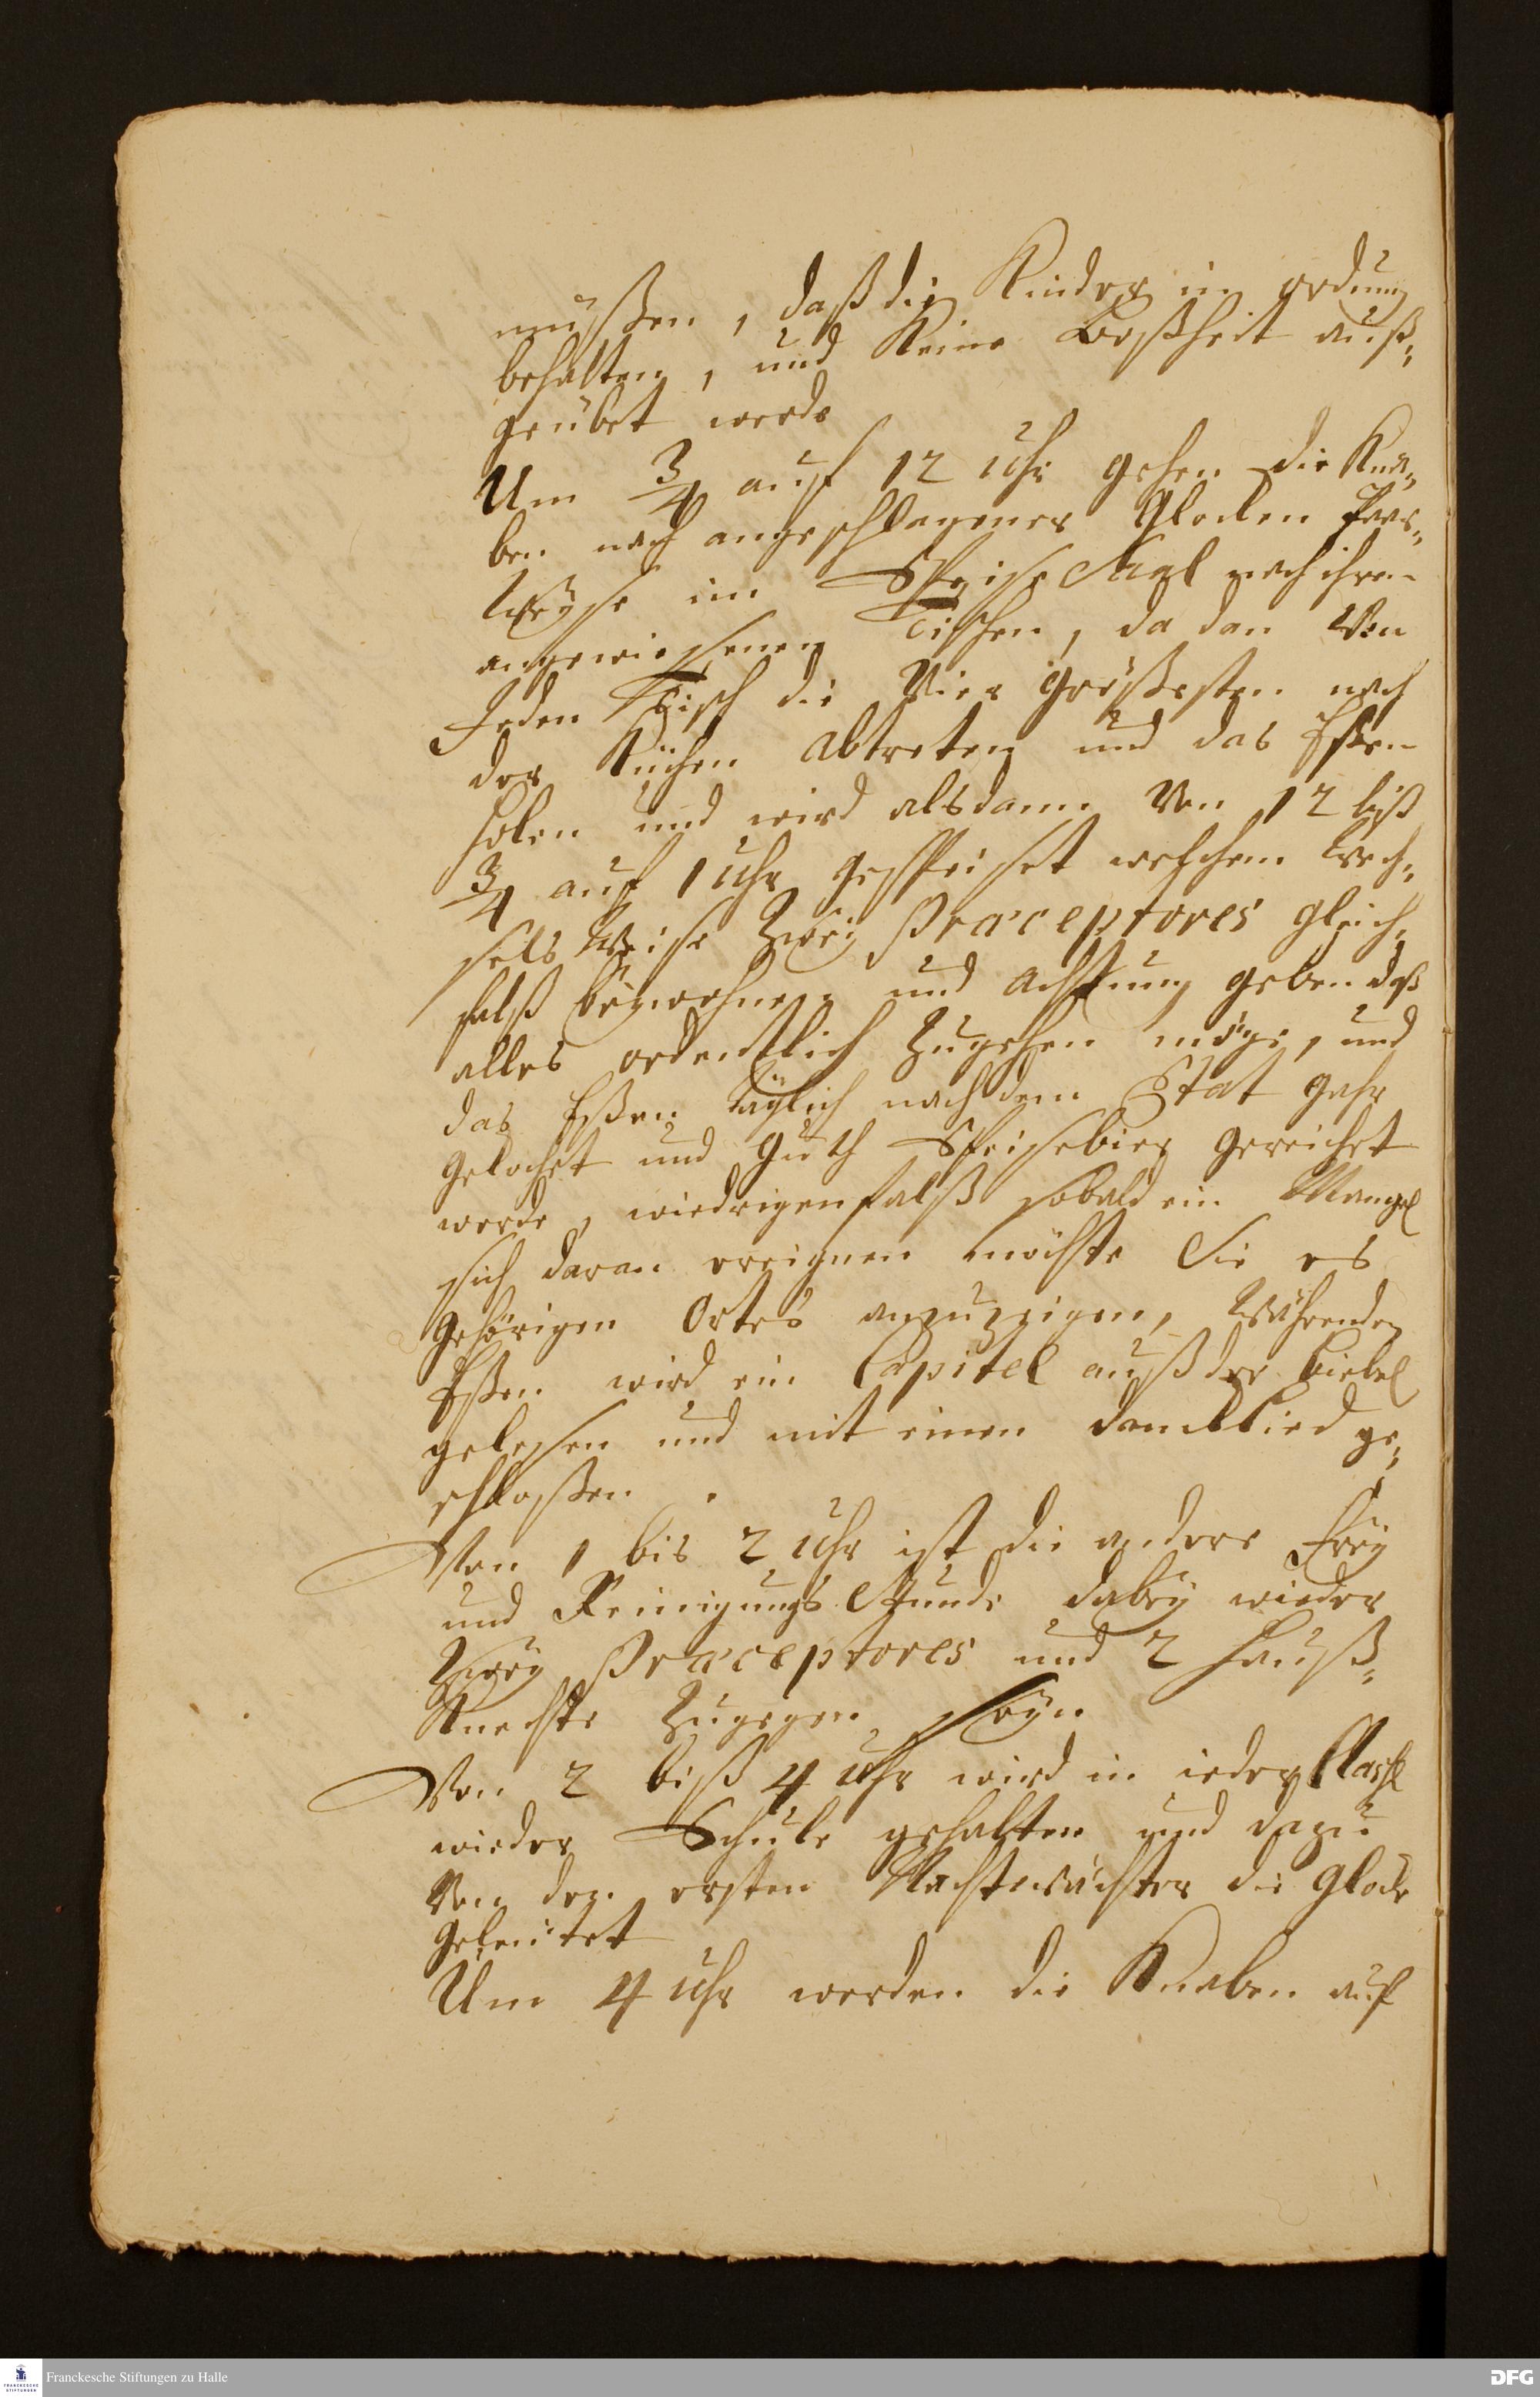 mußen, daß die Kinder in ordnung
behalten, und Keine Boßheit auß„
geübet werde
Um 3/4 auf 12 Uhr gehen die Kna„
ben nach angeschlagener Glocken Paar„
Weyse im Speise Saal nach ihren
angewiesenen Tischen, da dan Von
Jeden Tisch die Vier größesten nach
der Küchen abtreten und das Eßen
holen und wird alsdann Von 12 biß
3/4 auf 1 Uhr gespeiset welchem Wech„
sels Weise Zwey Præceptores gleich„
falß beywohnen und achtung geben daß
alles ordentlich Zugehen möge, und
das Eßen täglich nach dem Etat gahr
gekochet und guth Speisebier gereichet
werde, wiedrigenfalß sobald ein Mangel
sich daran ereignen möchte Sie es
gehörigen Ortes anzuzeigen, Währenden
Eßen wird ein Capitel auß der Biebel
gelesen und mit einen dancklied ge„
schloßen.
Von 1 bis 2 Uhr ist die andere Frey
und Reinigungs Stunde dabey wieder
Zwey Præceptores und 2 Hauß„
Knechte Zugegen seyn
Von 2 biß 4 Uhr wird in ieder Classe
wieder Schule gehalten und dazu
Von den ersten Nachtwächter die Glocke
geleutet
Um 4 Uhr werden die Knaben auf
Franckesche Stiftungen zu Halle
DFG